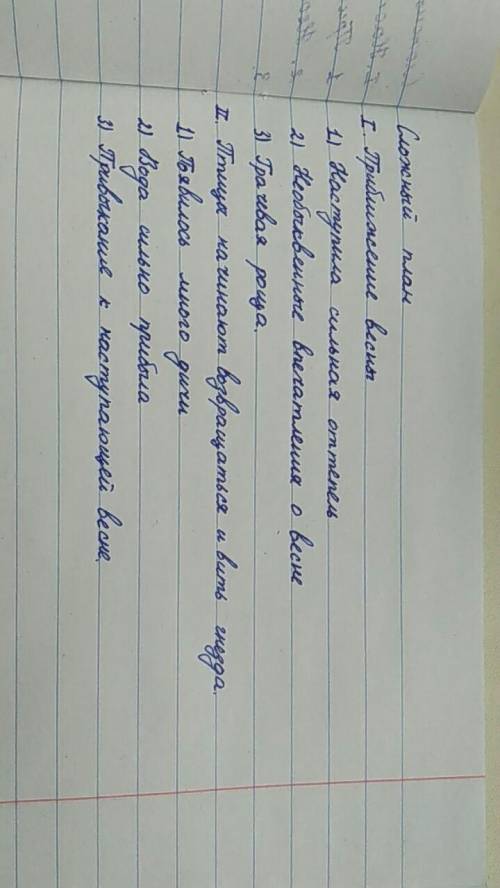 Сложный план
I. Приближение весны
1) Наступила сильная оттепель
2) Необыквенные впечатления о весне
3) Грачвая роща.
II. Птицы начинают возвращаться и вить гнезда.
1) Появилось много дичи
2) Вода сильно прибыла
3) Привыкание к наступающей весне.